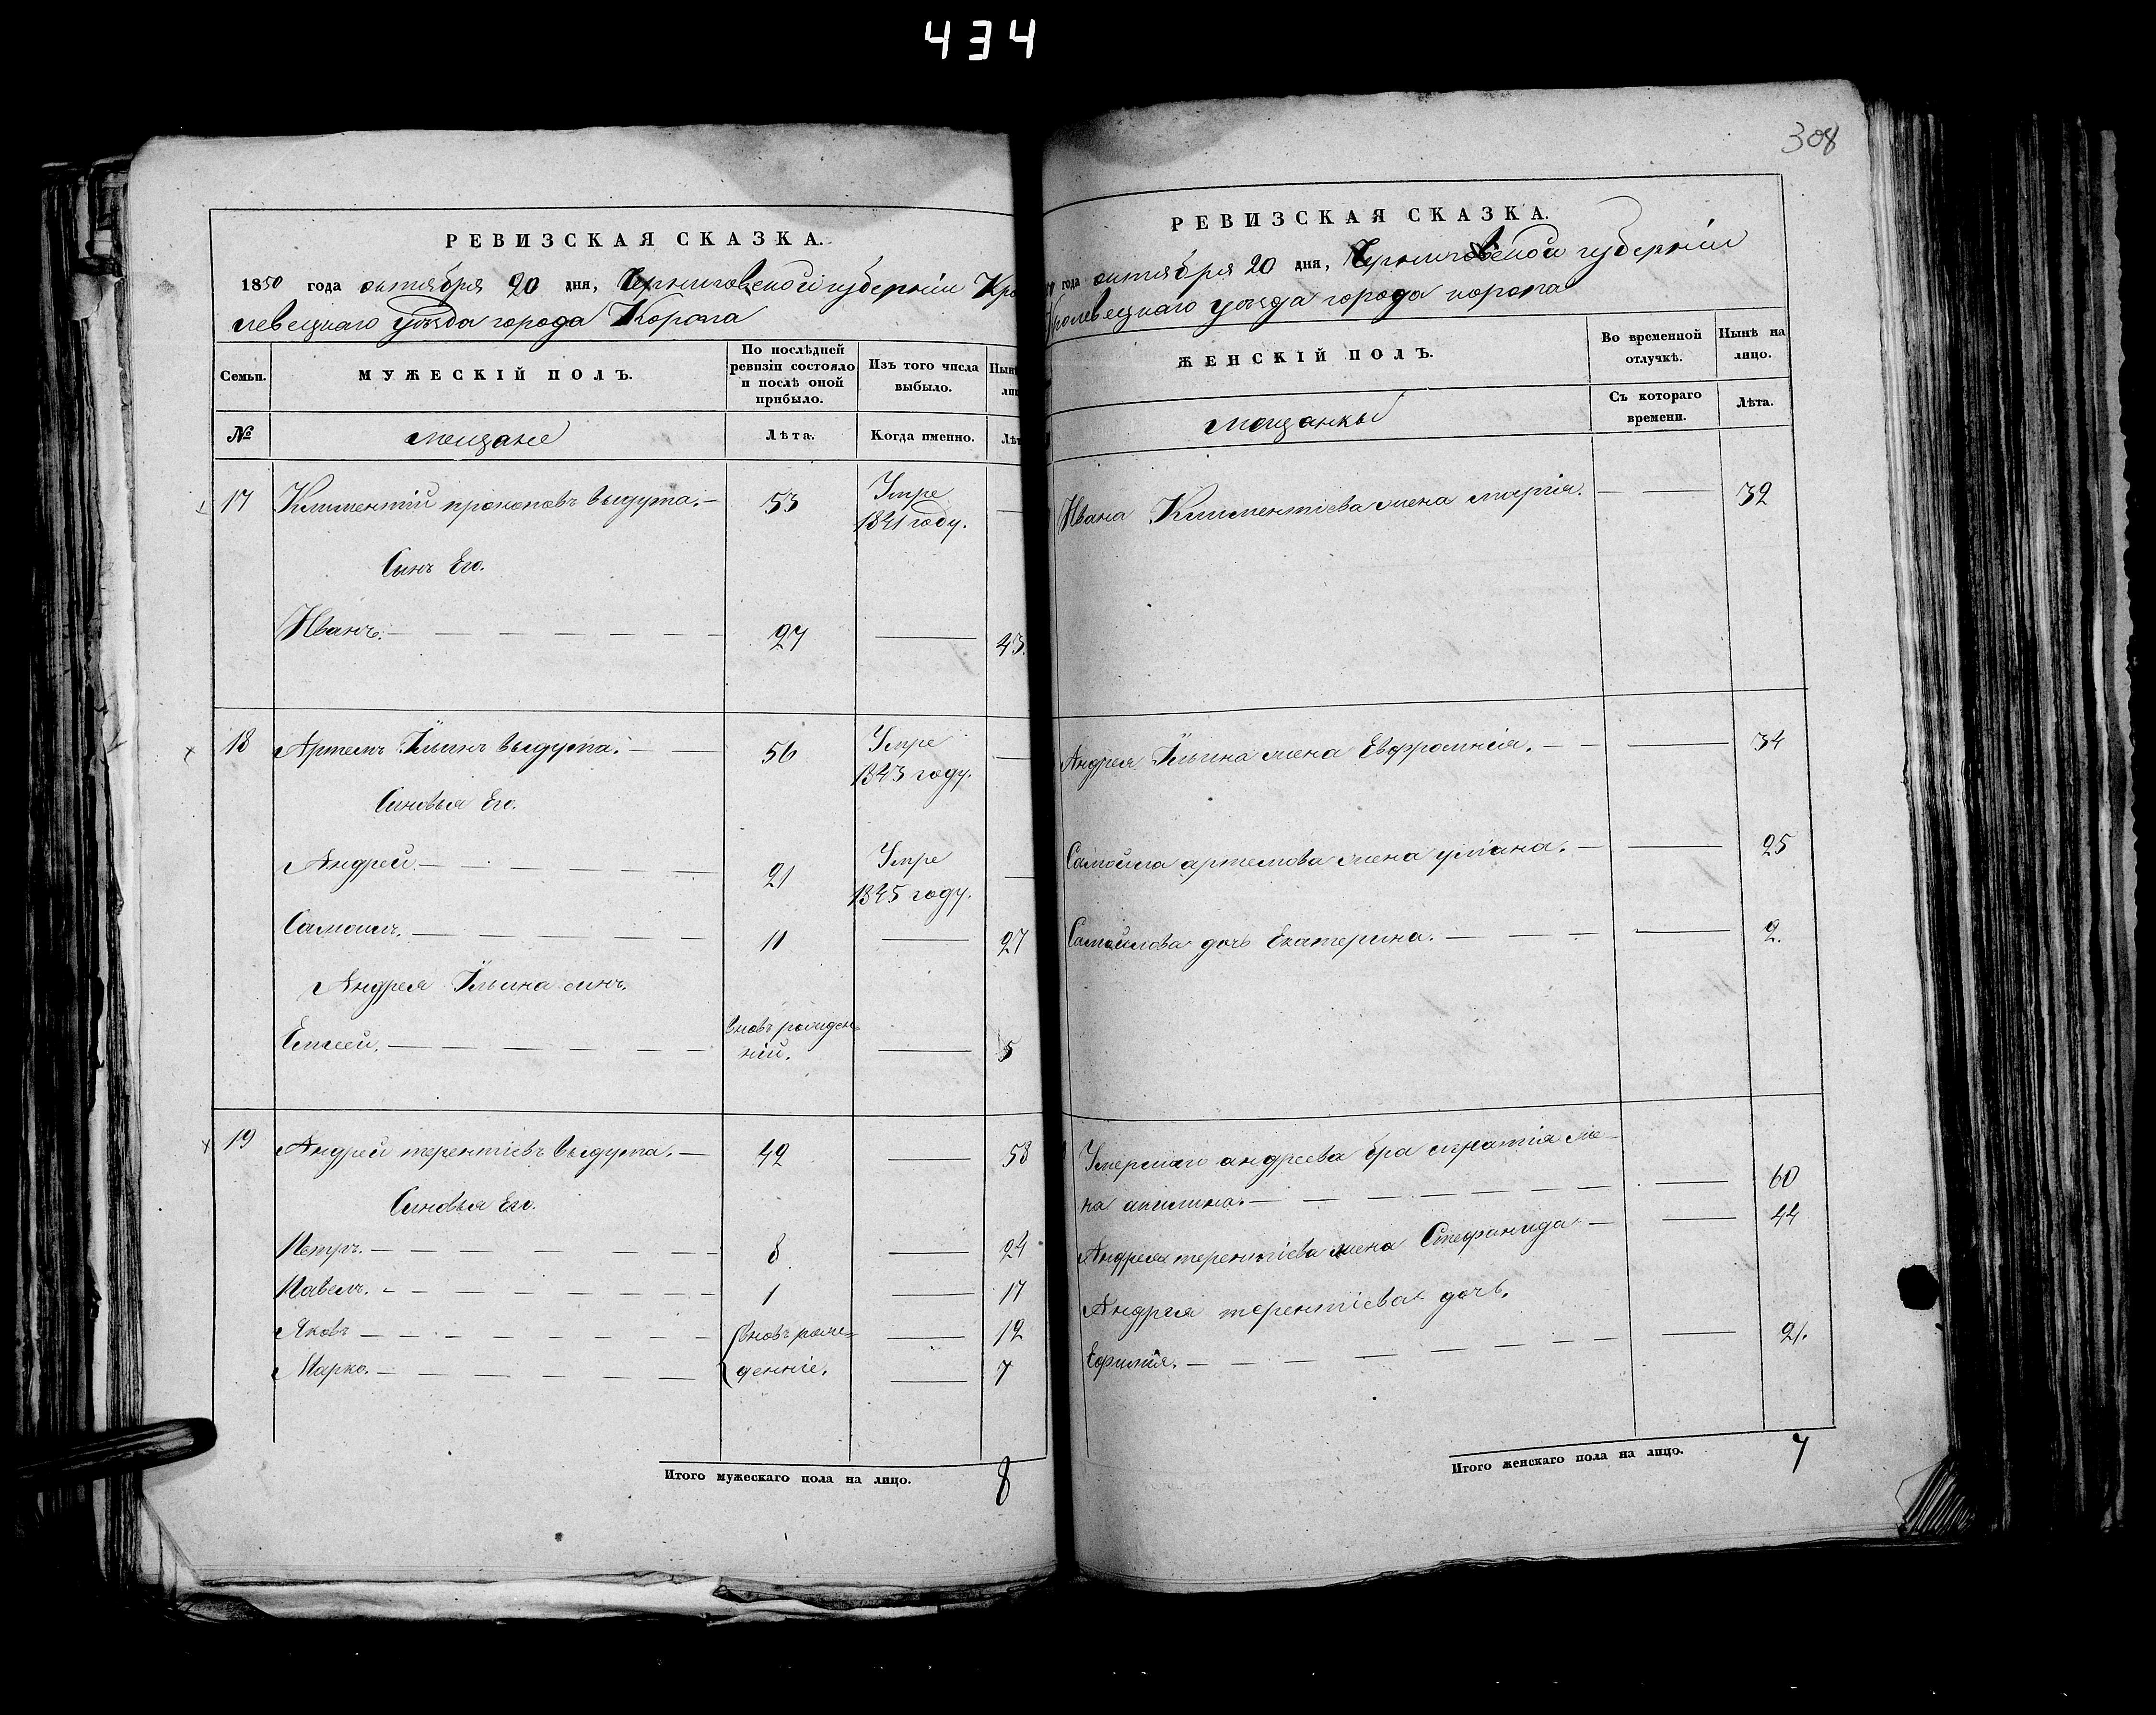 434
РЕВИЗСКАЯ СКАЗКА.
1850 года октября 20 дня, Черниговской губерніи Кро
левецкаго уѣзда города Коропа
Семьи.
МУЖЕСКІЙ ПОЛЪ.
По послѣдней ревизіи состояло и послѣ оной прибыло.
Изъ того числа выбыло.
№
мещане
Лѣта.
Когда именно.
17 Климентій прокоповъ выдута. — 53 Умре —
1841 году.
Сынъ Его.
Иванъ. — 27 — 43.
18 Артемъ Ильинъ выдута. — 56 Умре —
1843 году.
Синовья Его.
Андрей — 21 Умре —
1845 году.
Самоилъ. — 11 — 27
Андрея Ильина синъ.
Елисей. — вновь рожден
ній. — 5
19 Андрей терентіевъ выдута. — 42 — 58
Синовья Его.
Петръ. — 8 — 24
Павелъ. — 1 — 17
Яковъ — вновь рож — 12
Марко. — денніе. — 7
Итого мужескаго пола на лицо. 8
308
РЕВИЗСКАЯ СКАЗКА.
года октября 20 дня, Черниговской губерніи
Кролевецкаго уѣзда города коропа
ЖЕНСКІЙ ПОЛЪ.
Во временной отлучкѣ.
Нынѣ на лицо.
мещанки
Съ котораго времени.
Лѣта.
Ивана Климентіева жена марія. — 32
Андрея Ильина жена Евфросинія. — 34
Самойла артемова жена уліана. — 25
Самойлова дочь Екатерина. — 2.
Умершаго андреева бра игнатія же
на акилина. — 60
Андрея терентіева жена Стефанида — 44
Андрея терентіева дочь.
Ефимія. — 21.
Итого женскаго пола на лицо. 7